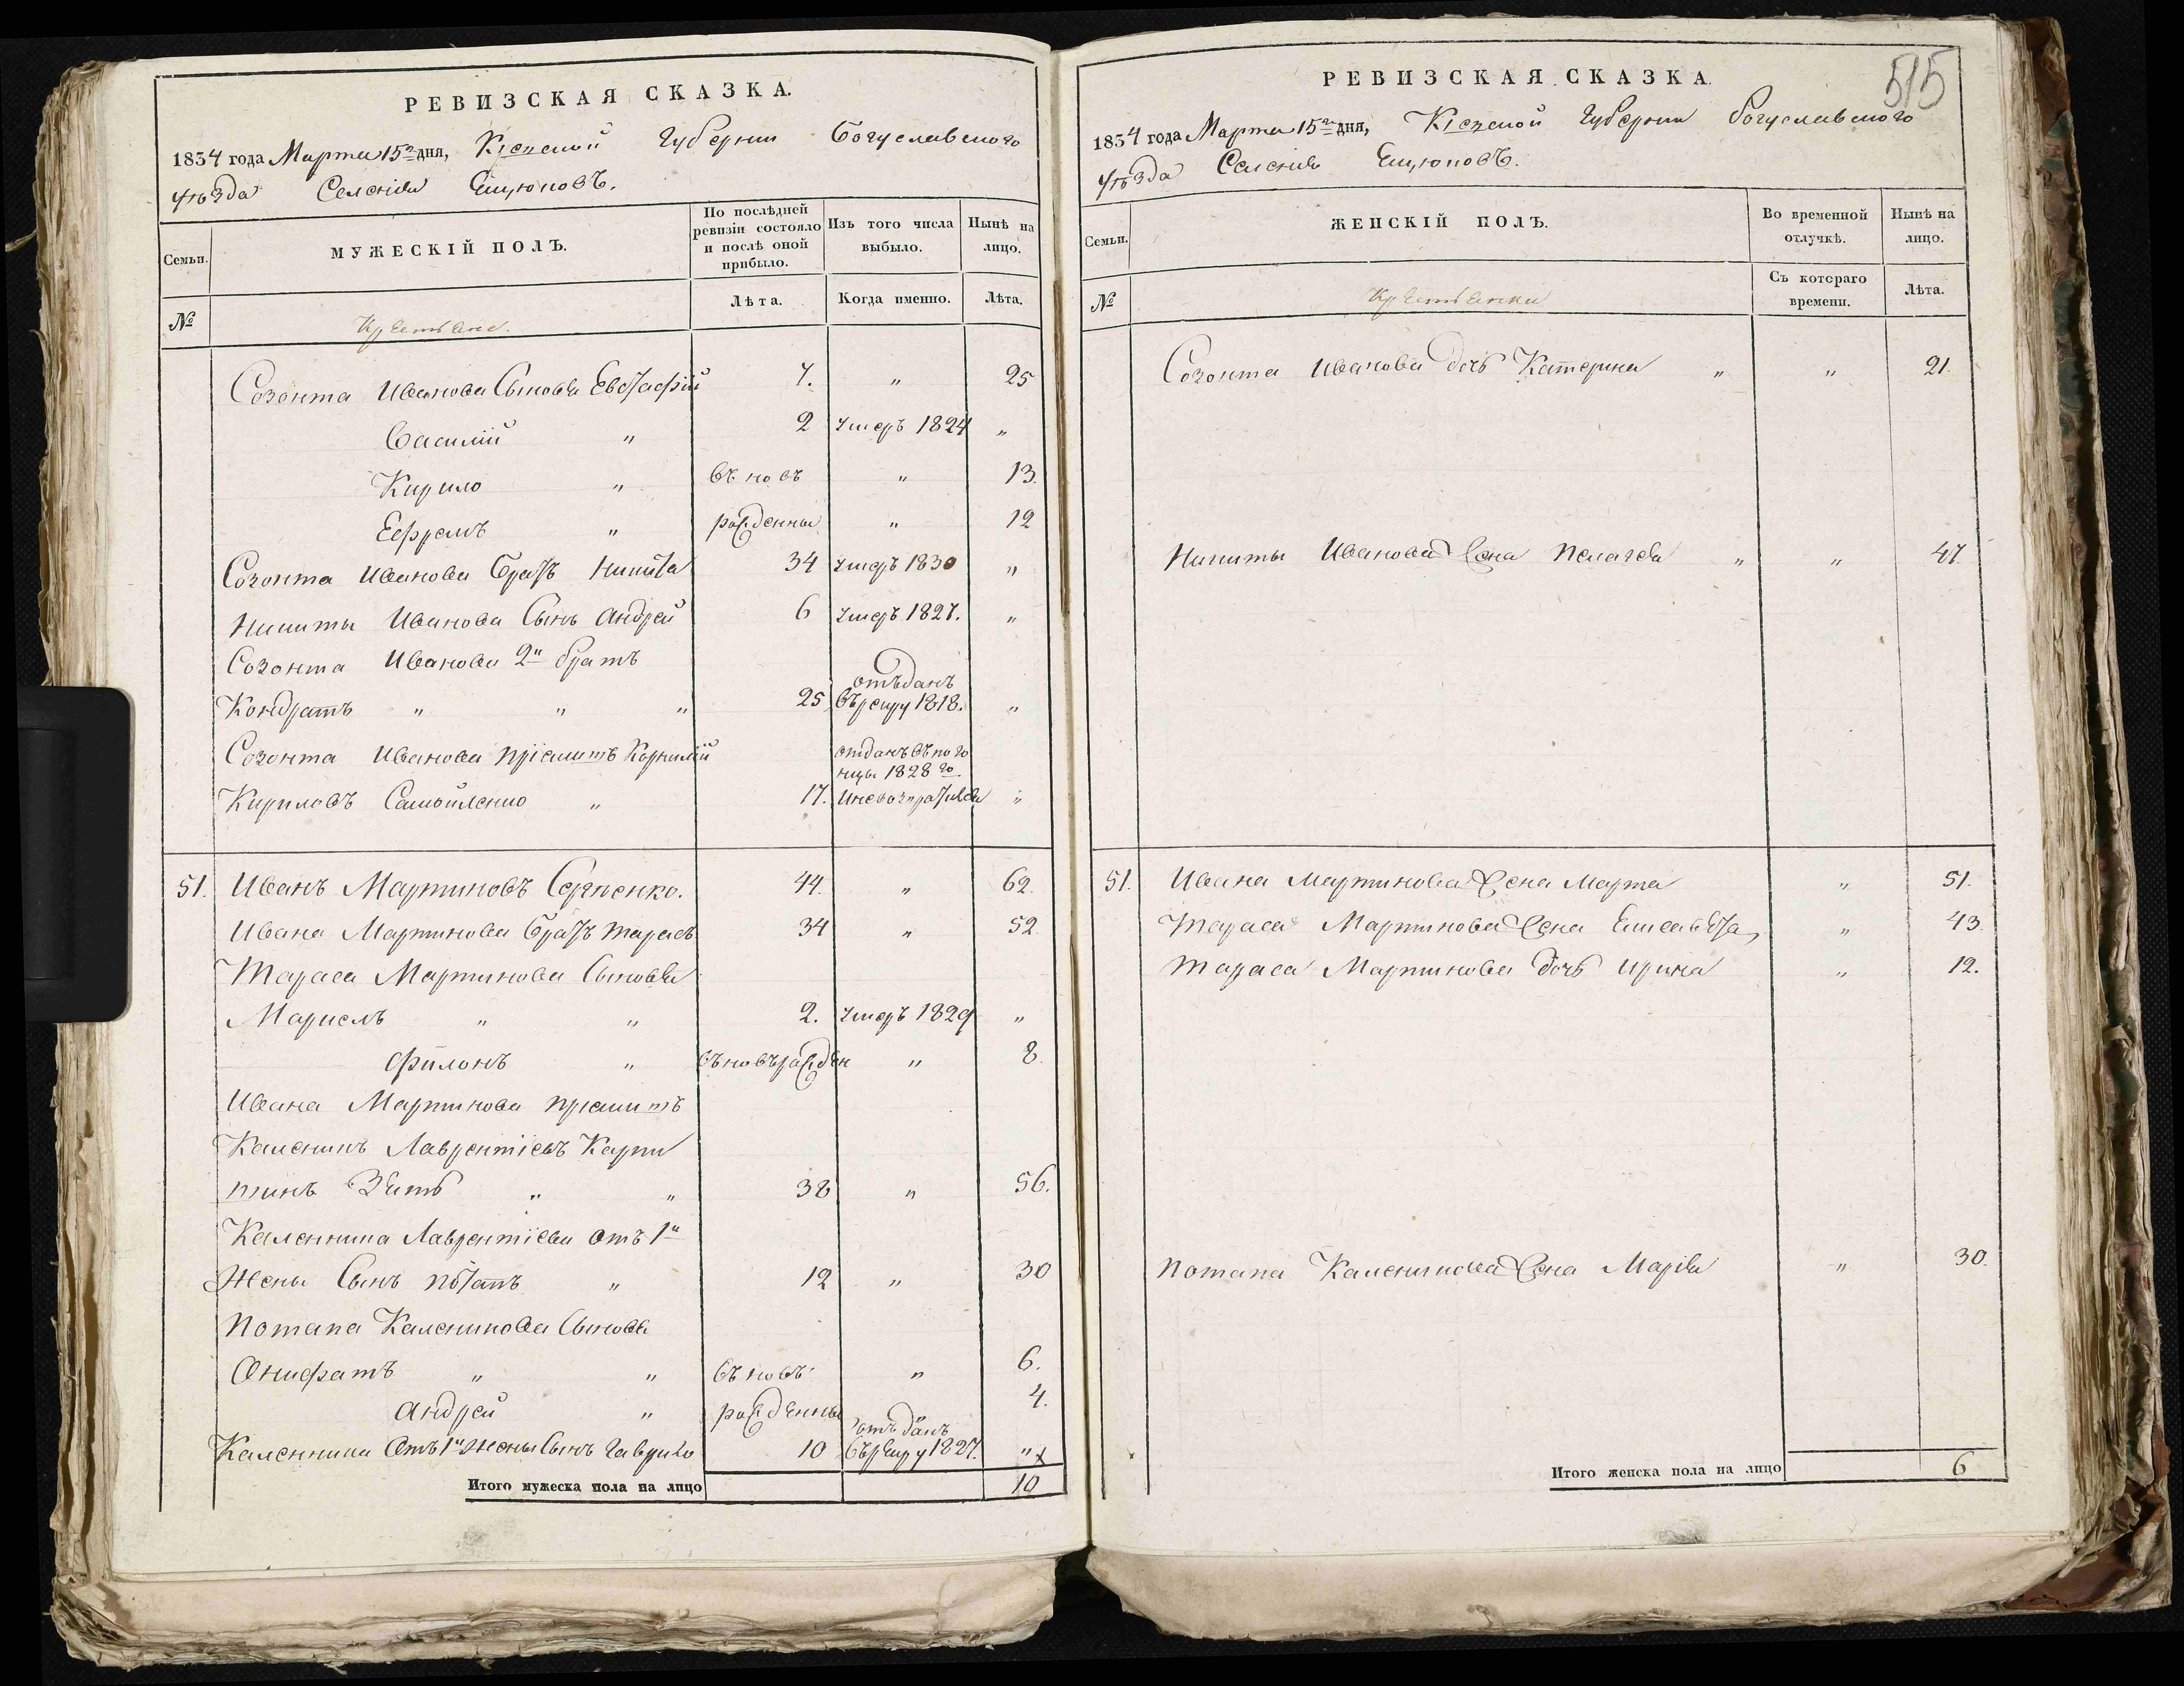 РЕВИЗСКАЯ СКАЗКА.
1834 года Марта 15го дня, Кіевской Губерніи Богуславского
уѣзда Селенія Ецюповъ.
Семьи.
МУЖЕСКІЙ ПОЛЪ.
По послѣдней ревизіи состояло и послѣ оной прибыло.
Изъ того числа выбыло.
Нынѣ на лицо.
№
Крестьяне.
Лѣта.
Когда именно.
Лѣта.
Созонта Иванова Сыновья Евстафій 7. " 25
Василій " 2 Умеръ 1824 "
Кирило " вновь " 13.
Ефремъ " рожденны " 12
Созонта Иванова Братъ Никита 34 Умеръ 1830 "
Никиты Иванова Сынъ Андрей 6 Умеръ 1827. "
Созонта Иванова 2й братъ
Кондратъ " " " 25 отъданъ въ рекру 1818. "
Созонта Иванова пріемитъ Корнилій
Кириловъ Самойленко " 17. отданъ въ погонцы 1828го. И невозвратився "
51. Иванъ Мартиновъ Сергѣенко. 44. " 62.
Ивана Мартинова Братъ Тарасъ 34 " 52.
Тараса Мартинова Сыновья
Маркелъ " " 2. Умеръ 1829 "
Филонъ " въновьрожден " 8.
Ивана Мартинова пріемитъ
Каленикъ Лаврентіевъ Карпи
Зять " " 38 " 56.
Каленника Лаврентіева отъ 1й
Жены Сынъ Потапъ " 12 " 30
Потапа Каленикова Сыновья
Онифратъ " " въновъ " 6.
Андрей " рожденны 4.
Каленника Отъ 1й Жены Сынъ Гаврило 10 отъданъ въ рекру 1827. "
Итого мужеска пола на лицо 10
515
РЕВИЗСКАЯ СКАЗКА.
1834 года Марта 15го дня, Кіевской Губерніи Богуславского
уѣзда Селенія Ецюповъ.
Семьи.
ЖЕНСКІЙ ПОЛЪ.
Во временной отлучкѣ.
Нынѣ на лицо.
№
Крестьянки
Съ котораго времени.
Лѣта.
Созонта Иванова дочь Катерина " " 21.
Никиты Иванова Жена Пелагея " " 47.
51. Ивана Мартинова Жена Марта " 51.
Тараса Мартинова Жена Елисавета " 43.
Тараса Мартинова Дочь Ирина " 12.
Потапа Каленикова Жена Марія " 30.
Итого женска пола на лицо 6